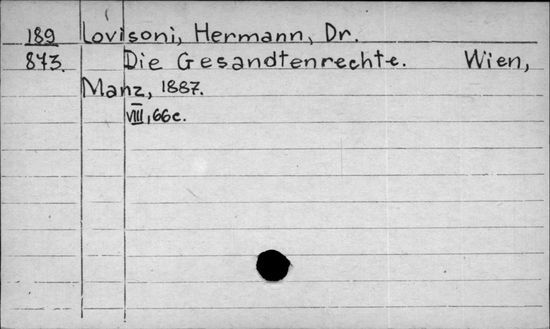 189 Lovisoni, Hermann, Dr.
843. Die Gesandtenrechte. Wien,
Manz, 1887.
VIII, 66c.